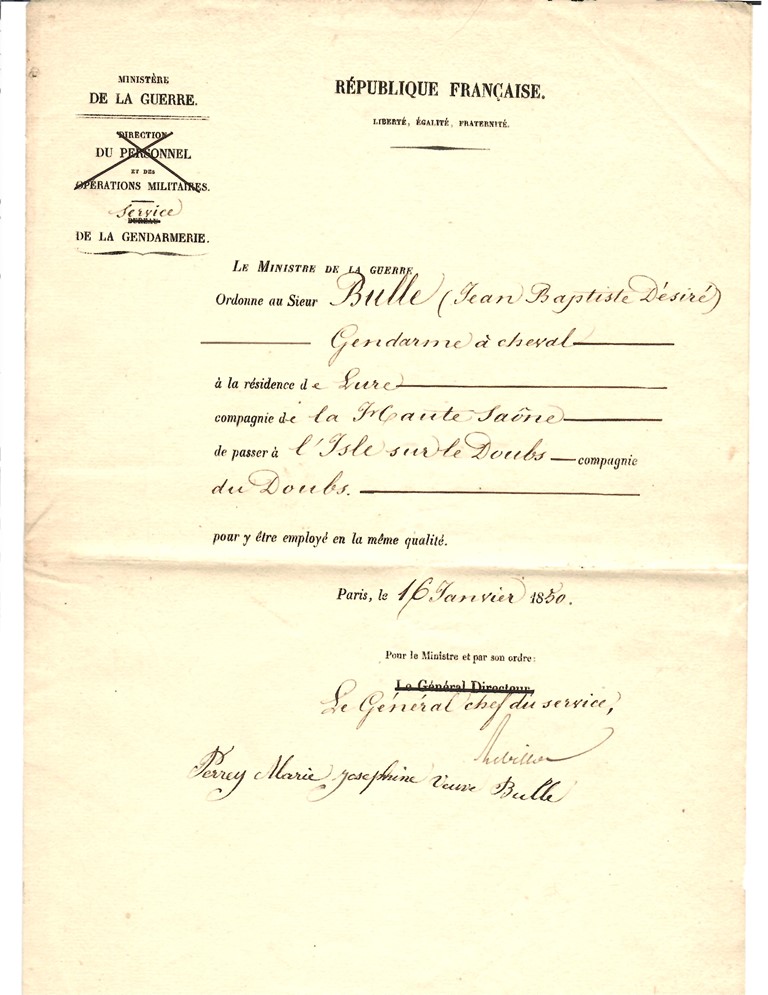 MINISTÈRE
DE LA GUERRE.
DIRECTION
DU PERSONNEL
ET DES
OPÉRATIONS MILITAIRES.
Service
BUREAU
DE LA GENDARMERIE.
RÉPUBLIQUE FRANÇAISE.
LIBERTÉ, ÉGALITÉ, FRATERNITÉ.
LE MINISTRE DE LA GUERRE
Ordonne au Sieur Bulle (Jean Baptiste Désiré)
Gendarme à cheval
à la résidence de Lure
compagnie de la Haute Saône
de passer à l'Isle sur le Doubs compagnie
du Doubs.
pour y être employé en la même qualité.
Paris, le 16 Janvier 1850.
Pour le Ministre et par son ordre:
Le Général Directeur,
Le Général chef du service,
Perrey Marie Josephine Veuve Bulle